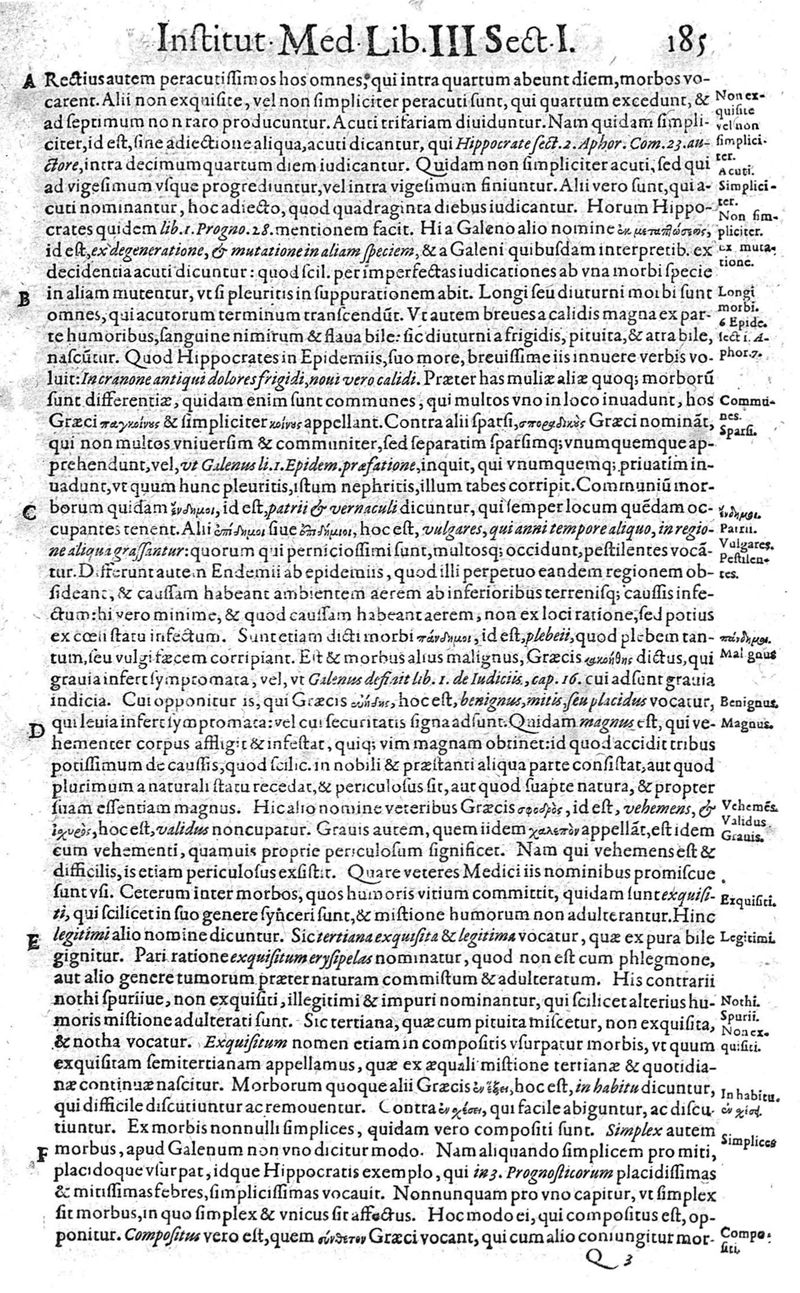 Institut. Med. Lib. III Sect. I. 185
A Rectius autem peracutissimos hos omnes, qui intra quartum abeunt diem, morbos vo-
carent. Alii non exquisite, vel non simpliciter peracuti sunt, qui quartum excedunt, & Non ex-
ad septimum non raro producuntur. Acuti trifariam diuiduntur. Nam quidam simpli- quisite vel non
citer, id est, sine adiectione aliqua, acuti dicantur, qui Hippocrate sect. 2. Aphor. Com. 23. au- simplici-
ctore, intra decimum quartum diem iudicantur. Quidam non simpliciter acuti, sed qui ter. Acuti.
ad vigesimum vsque progrediuntur, vel intra vigesimum finiuntur. Alii vero sunt, qui a- Simplici-
cuti nominantur, hoc adiecto, quod quadraginta diebus iudicantur. Horum Hippo- ter. Non sim-
crates quidem lib. 1. Progno. 28. mentionem facit. Hi a Galeno alio nomine ἐκ μεταπτώσεως, pliciter.
id est, ex degeneratione, & mutatione in aliam speciem, & a Galeni quibusdam interpretib. ex ex muta-
decidentia acuti dicuntur: quod scil. per imperfectas iudicationes ab vna morbi specie tione.
B in aliam mutentur, vt si pleuritis in suppurationem abit. Longi seu diuturni morbi sunt Longi
omnes, qui acutorum terminum transcendūt. Vt autem breues a calidis magna ex par- morbi. 6 Epide.
te humoribus, sanguine nimirum & flaua bile: sic diuturni a frigidis, pituita, & atra bile, sect 1. A-
nascūtur. Quod Hippocrates in Epidemiis, suo more, breuissime iis innuere verbis vo- phor. 7.
luit: In cranone antiqui dolores frigidi, noui vero calidi. Præter has multæ aliæ quoq; morborū
sunt differentiæ, quidam enim sunt communes, qui multos vno in loco inuadunt, hos Commu-
Græci παγκοίνους & simpliciter κοίνους appellant. Contra alii sparsi, σποραδικοὺς Græci nominãt, nes. Sparsi.
qui non multos vniuersim & communiter, sed separatim sparsimq; vnumquemque ap-
prehendunt, vel, vt Galenus li. 1. Epidem. præfatione, inquit, qui vnumquemq; priuatim in-
uadunt, vt quum hunc pleuritis, istum nephritis, illum tabes corripit. Communiū mor-
C borum quidam ἔνδημοι, id est, patrii & vernaculi dicuntur, qui semper locum quẽdam oc- ἔνδημοι.
cupantes tenent. Alii ἐπίδημοι siue ἐπιδήμιοι, hoc est, vulgares, qui anni tempore aliquo, in regio- Patrii.
ne aliqua grassantur: quorum qui perniciosissimi sunt, multosq; occidunt, pestilentes vocã- Vulgares. Pestilen-
tur. Differunt autem Endemii ab epidemiis, quod illi perpetuo eandem regionem ob- tes.
sideant, & caussam habeant ambientem aerem ab inferioribus terrenisq; caussis infe-
ctum: hi vero minime, & quod caussam habeant aerem, non ex loci ratione, sed potius
ex cœli statu infectum. Sunt etiam dicti morbi πάνδημοι, id est, plebeii, quod plebem tan- πάνδημοι.
tum, seu vulgi fæcem corripiant. Est & morbus alius malignus, Græcis κακοήθης dictus, qui Malignus
grauia infert symptomata, vel, vt Galenus definit lib. 1. de Iudiciis, cap. 16. cui adsunt grauia
indicia. Cui opponitur is, qui Græcis εὐήθης, hoc est, benignus, mitis, seu placidus vocatur, Benignus.
D qui leuia infert symptomata: vel cui securitatis signa adsunt. Quidam magnus est, qui ve- Magnus.
hementer corpus affligit & infestat, quiq; vim magnam obtinet: id quod accidit tribus
potissimum de caussis, quod scilic. in nobili & præstanti aliqua parte consistat, aut quod
plurimum a naturali statu recedat, & periculosus sit, aut quod suapte natura, & propter
suam essentiam magnus. Hic alio nomine veteribus Græcis σφοδρὸς, id est, vehemens, & Vehemẽs.
ἰσχυρὸς, hoc est, validus noncupatur. Grauis autem, quem iidem χαλεπὸν appellãt, est idem Validus Grauis.
cum vehementi, quamuis proprie periculosum significet. Nam qui vehemens est &
difficilis, is etiam periculosus exsistit. Quare veteres Medici iis nominibus promiscue
sunt vsi. Ceterum inter morbos, quos humoris vitium committit, quidam sunt exquisi- Exquisiti.
ti, qui scilicet in suo genere synceri sunt, & mistione humorum non adulterantur. Hinc
E legitimi alio nomine dicuntur. Sic tertiana exquisita & legitima vocatur, quæ ex pura bile Legitimi.
gignitur. Pari ratione exquisitum erysipelas nominatur, quod non est cum phlegmone,
aut alio genere tumorum præter naturam commistum & adulteratum. His contrarii
nothi spuriiue, non exquisiti, illegitimi & impuri nominantur, qui scilicet alterius hu- Nothi.
moris mistione adulterati sunt. Sic tertiana, quæ cum pituita miscetur, non exquisita, Spurii. Non ex-
& notha vocatur. Exquisitum nomen etiam in compositis vsurpatur morbis, vt quum quisiti.
exquisitam semitertianam appellamus, quæ ex æquali mistione tertianæ & quotidia-
næ continuæ nascitur. Morborum quoque alii Græcis ἐν ἕξει, hoc est, in habitu dicuntur, In habitu.
qui difficile discutiuntur ac remouentur. Contra ἐν σχέσει, qui facile abiguntur, ac discu- ἐν σχέσει.
tiuntur. Ex morbis nonnulli simplices, quidam vero compositi sunt. Simplex autem Simplices
F morbus, apud Galenum non vno dicitur modo. Nam aliquando simplicem pro miti,
placidoque vsurpat, idque Hippocratis exemplo, qui in 3. Prognosticorum placidissimas
& mitissimas febres, simplicissimas vocauit. Nonnunquam pro vno capitur, vt simplex
sit morbus, in quo simplex & vnicus sit affectus. Hoc modo ei, qui compositus est, op-
ponitur. Compositus vero est, quem σύνθετον Græci vocant, qui cum alio coniungitur mor- Compo-siti.
Q 3